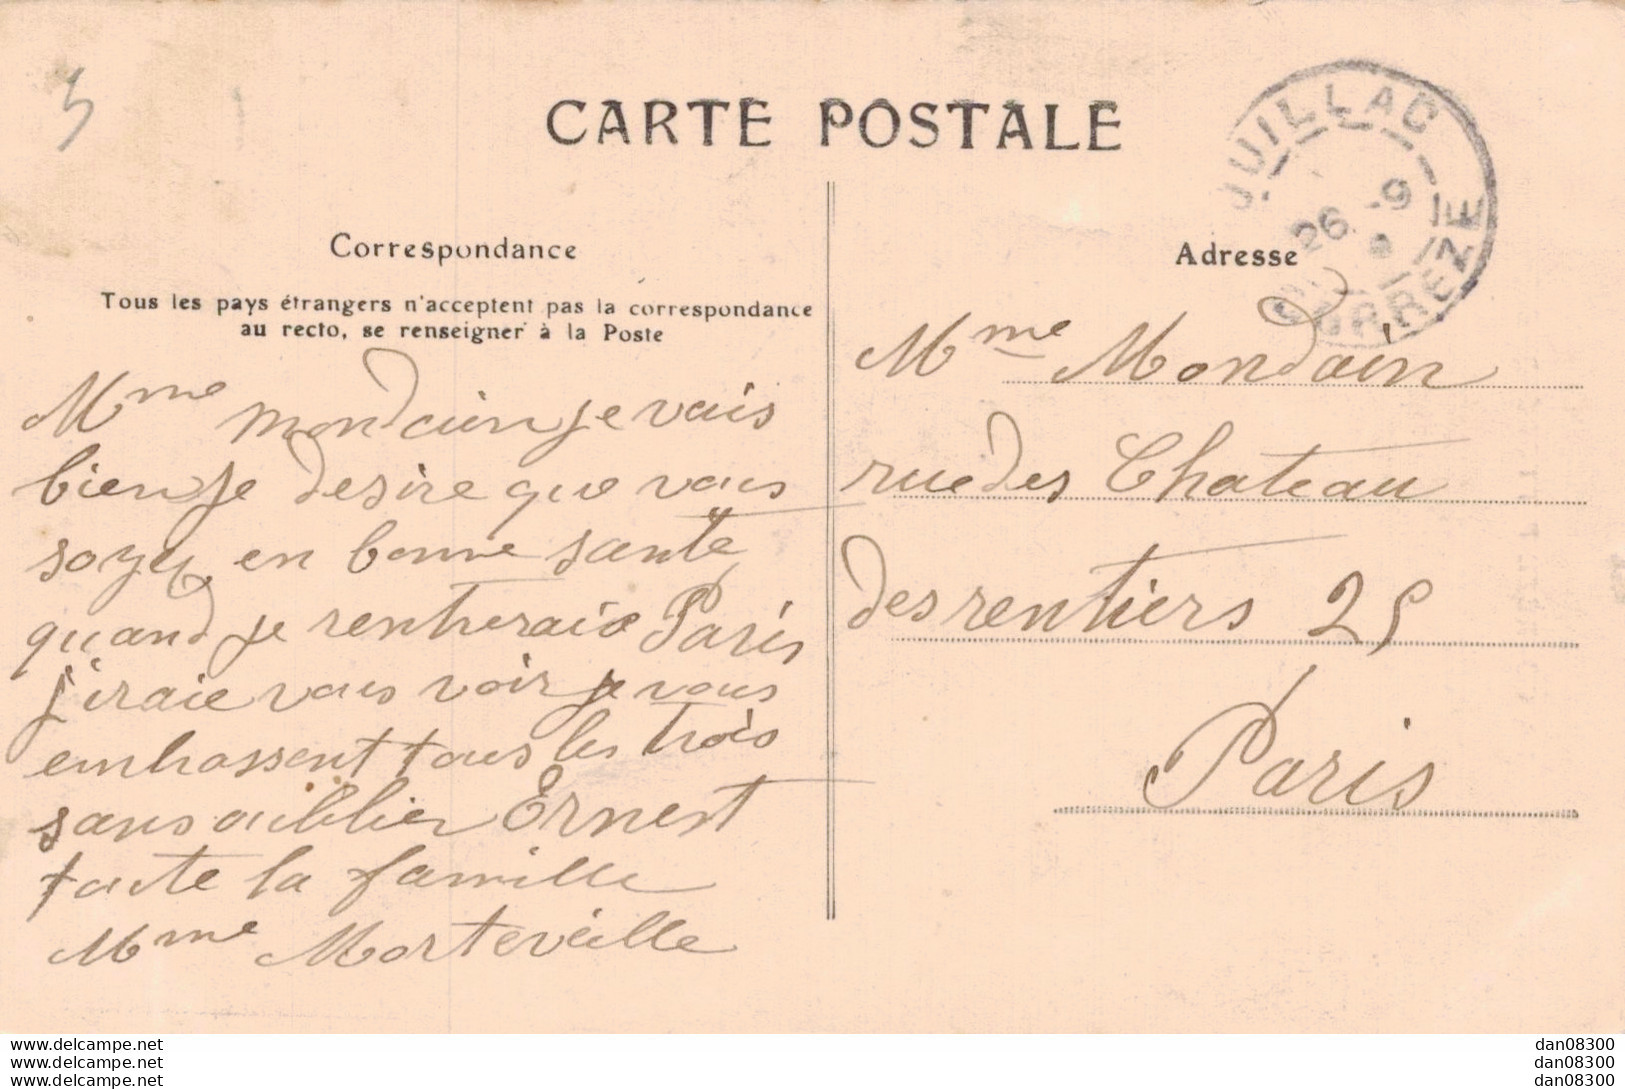 5
CARTE POSTALE
JUILLAC
26 -9
CORRÈZE
Correspondance
Tous les pays étrangers n'acceptent pas la correspondance
au recto, se renseigner à la Poste
Mme mondain je vais
bien je desire que vous
soyez en bonne santé
quand je rentrerais Paris
j'iraie vous voir je vous
embrassent tous les trois
sans oublier Ernest
toute la famille
Mme Morteveille
Adresse
Mme Mondain
rue des Chateau
des rentiers 25
Paris
www.delcampe.net
www.delcampe.net
www.delcampe.net
dan08300
dan08300
dan08300